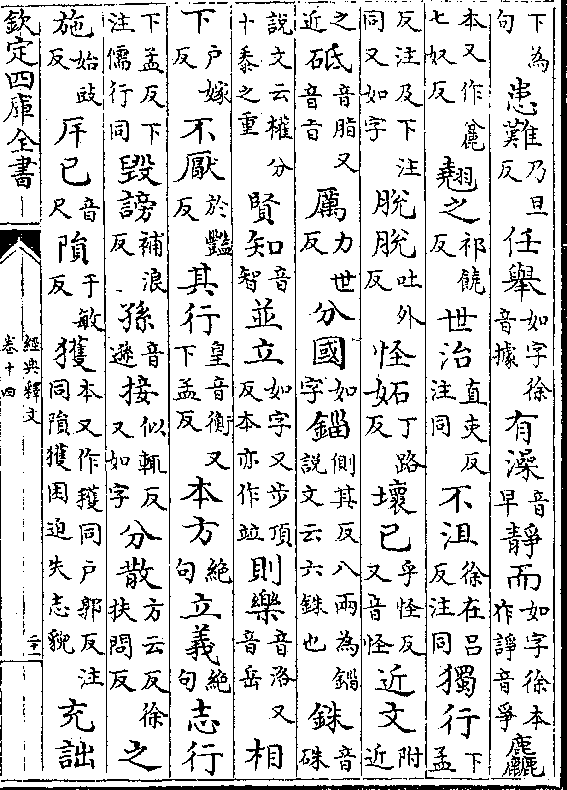 下為句患難乃旦反任舉如字徐音據有澡音早靜而如字徐本作諍音爭麤
本又作麄七奴反翹之祁饒反世治直吏反注同不沮徐在吕反注同獨行下孟
反注及下注同又如字脫脫吐外反怪妬丁路反壞已乎怪反又音怪近文附近
之近砥音脂又音㫖厲力世反分國如字錙側其反八兩為錙說文云六銖也銖音硃
說文云權分十黍之重賢知音智並立如字又步頂反本亦作竝則樂音洛又音岳相
下户嫁反不厭於豔反其行皇音衡又下孟反本方絶句立義絶句志行
下孟反下注儒行同毀謗補浪反孫音遜接似輒反又如字分散方云反徐扶問反之
施始豉反厈已音尺隕于敏反獲本又作穫同户郭反注同隕獲困迫失志貌充詘
欽定四庫全書
經典釋文
卷十四